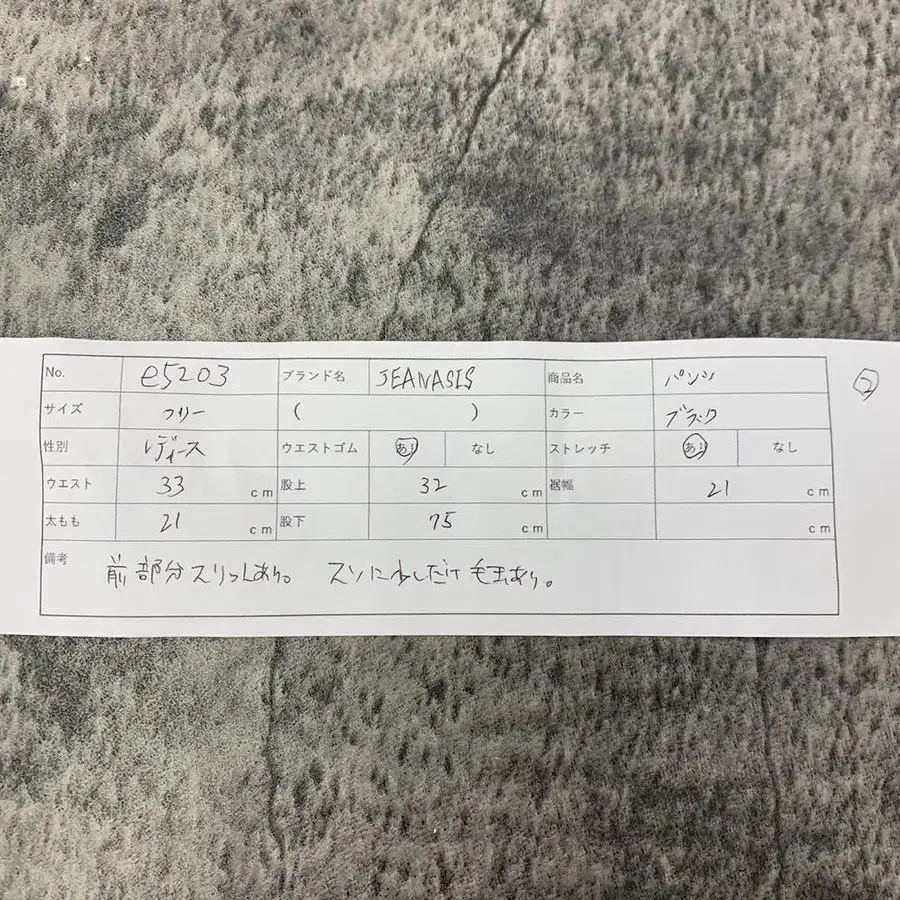 No. e5203 ブランド名 JEANASIS 商品名 パンツ ②
サイズ フリー ( ) カラー ブラック
性別 レディース ウエストゴム あり なし ストレッチ あり なし
ウエスト 33 cm 股上 32 cm 裾幅 21 cm
太もも 21 cm 股下 75 cm cm
備考 前部分スリットあり。 スソに少しだけ毛玉あり。